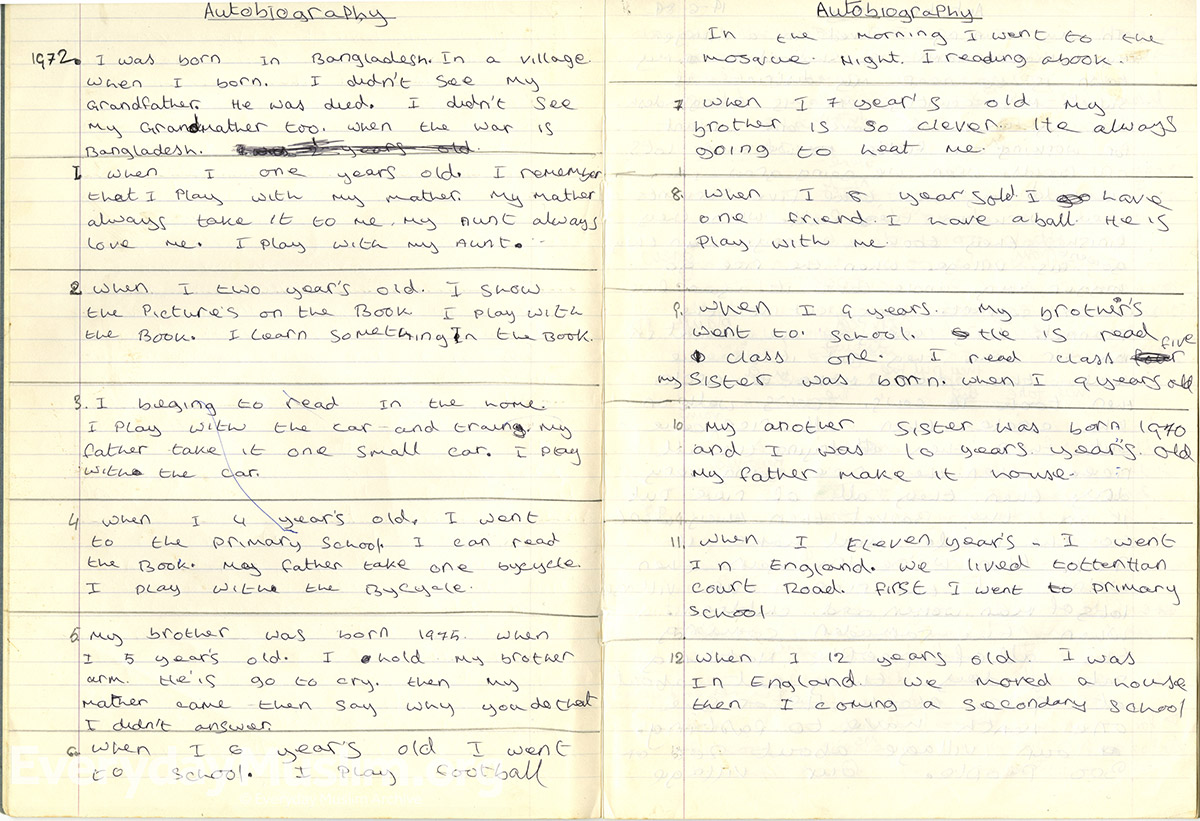 Autobiography
1972. I was born in Bangladesh. In a village.
when I born. I didn't see my
Grandfather. He was died. I didn't see
my Grandmather too. when the war is
Bangladesh.
1 when I one years old. I remember
that I Play with my mather. My mather
always take it to me. my Aunt always
love me. I Play with my Aunt.
2 when I two year's old. I show
the Picture's on the Book I Play with
the Book. I learn something In the Book.
3. I beging to read in the home.
I Play with the car and traing. my
father take it one small car. I Play
withe the car.
4 when I 4 year's old. I went
to the Primary School I can read
the Book. My father take one bycycle.
I Play withe the Bycycle.
5 My brother was born 1975. when
I 5 year's old. I hold my brother
arm. He is go to cry. then my
mather came then say why you do that
I didn't answer.
6 when I 6 year's old I went
to school. I Play football
Everyday Muslim.org
Autobiography
In the morning I went to the
mosque. Night. I reading a book.
7 when I 7 year's old my
brother is so clever. He always
going to heat me.
8. when I 8 years old. I have
one friend. I have a ball He is
Play with me.
9. when I 9 years. My brother's
went to school. He is read
class one. I read class five
my sister was born. when I 9 years old
10 my another sister was born 1970
and I was 10 years. year's. old
my father make it house.
11. when I Eleven year's - I went
In England. we lived tottenttan
court Road. first I went to primary
school
12 when I 12 years old. I was
In England. we moved a house
then I coming a secondary school